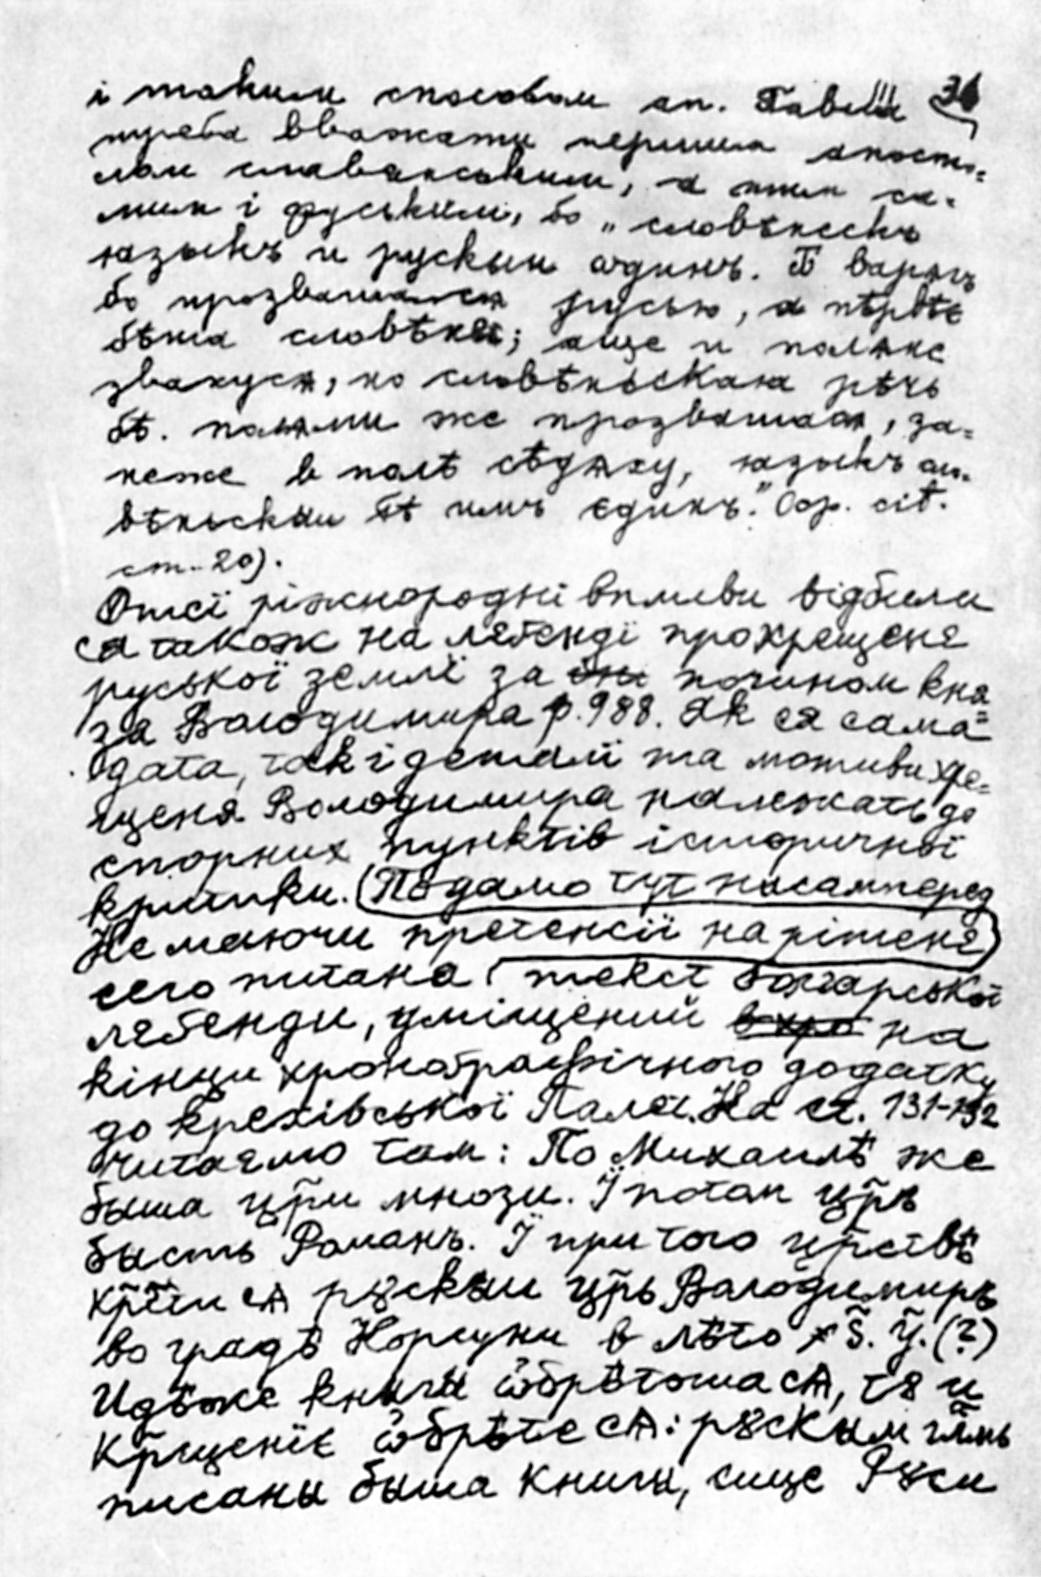 і таким способом ап. Павла 31
треба вважати першим апосто-
лом славянським, а тим са-
мим і руським, бо „словѣнескъ
языкъ и рускыи ѡдинъ. Ѿ варягъ
бо прозвашася русью, а пѣрвѣе
бѣша словѣне; аще и поляне
звахуся, но словѣньскаꙗ рѣчь
бѣ. полями же прозвашася, за-
неже в полѣ сѣдяху, языкъ сло-
вѣньскыи бѣ имъ єдинъ." Op. cit.
ст. 20).
Отсї ріжнородні впливи відбили
ся також на лєґенді про хрещенє
руської землї за почином кня-
за Володимира р. 988. Як ся сама
дата, так і деталї та мотиви хре-
щеня Володимира належать до
спорних пунктів історичної
критики. (Подамо тут насамперед
Не маючи претенсії на рішенє)
сего питаня (текст болгарської
лєґенди, уміщений на
кінци хроноґрафічного додатку
до Крехівської Палеї. На ст. 131-132
читаємо там: По Михаилѣ же
быша цр҃и мнози. Ї потом цр҃ь
бысть Романъ. Ї при того цр҃ствѣ
кр҃тися рꙋскыи цр҃ь Володимиръ
во градѣ Корсуни в лѣто ҂ѕ҃. у҃. (?)
Идѣже книги ѡбрѣтошася, тꙋ и
Кр҃щенїє ѡбрѣтеся: рꙋскым гл҃мь
писаны быша книги, сице Рꙋси